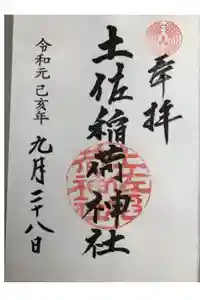 奉拝
土佐稲荷神社
令和元己亥年
九月二十八日